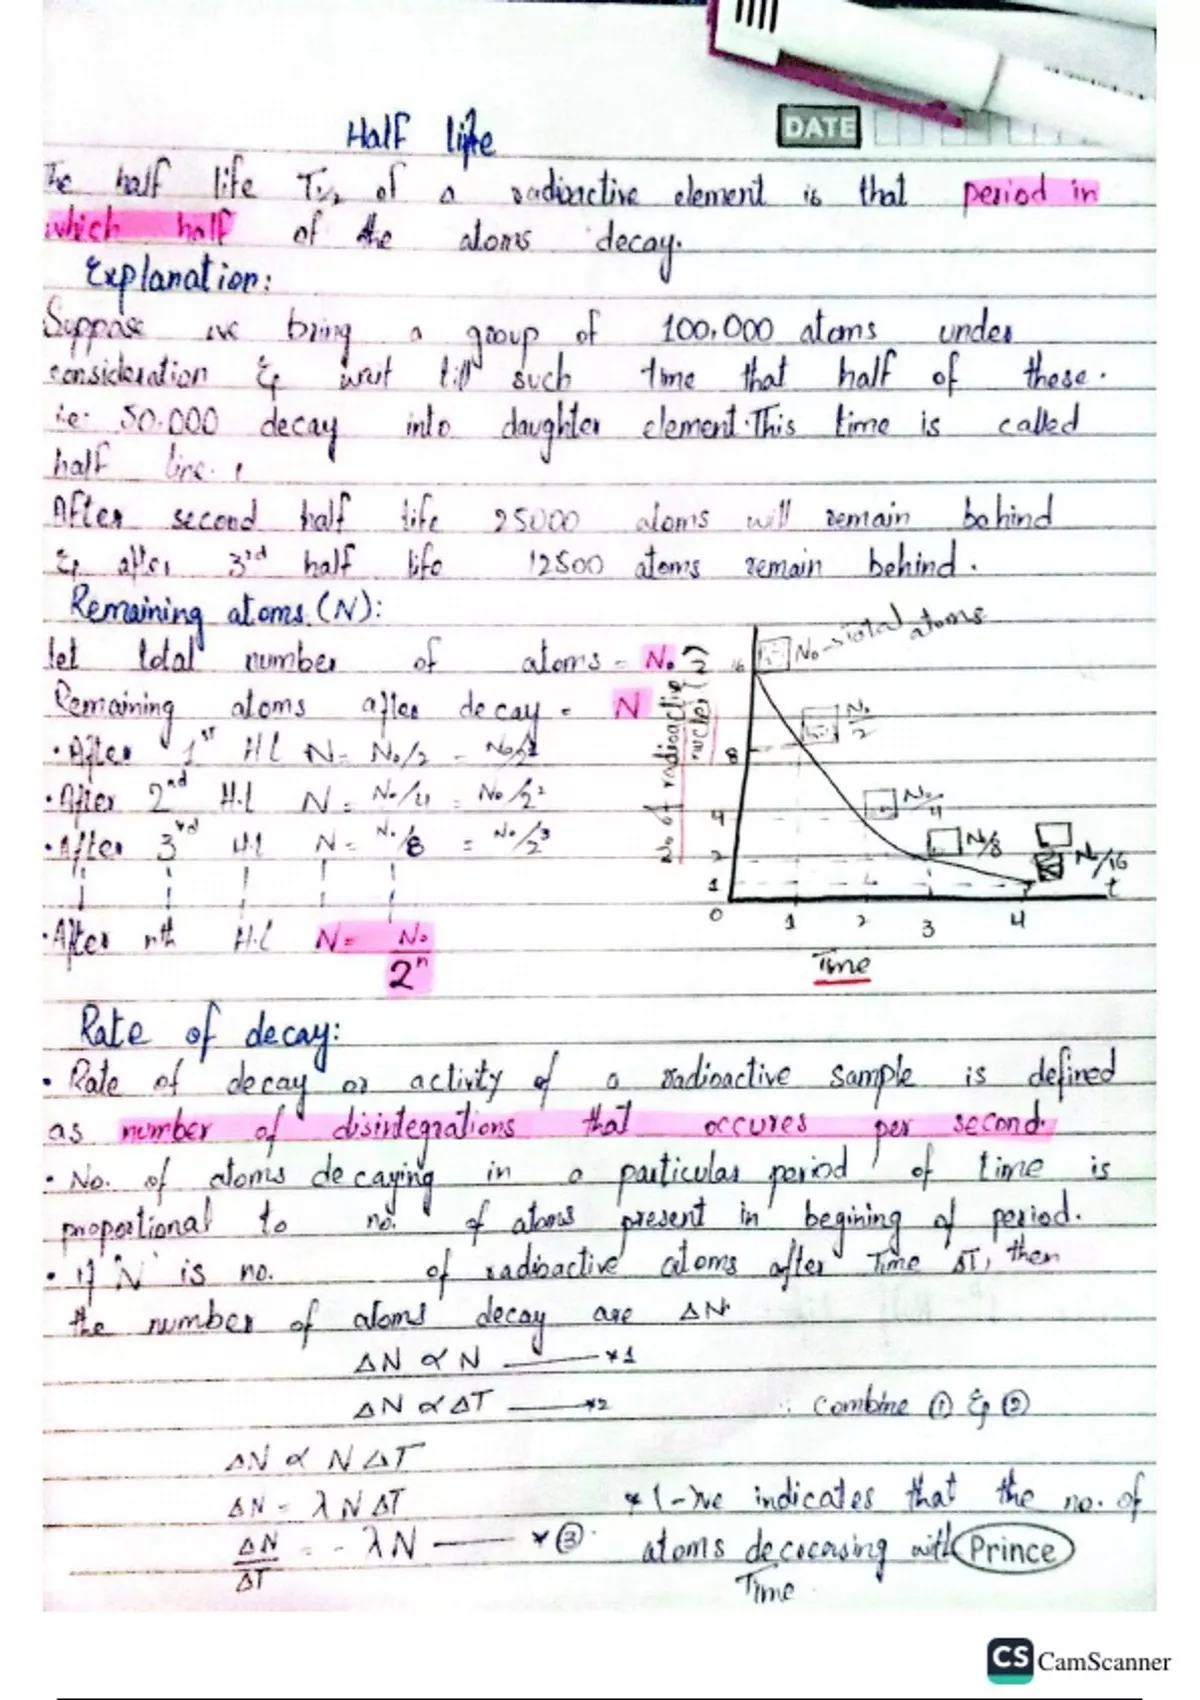 DATE
Half life
The half life T½ of a radioactive element is that period in
which half of the atoms decay.
Explanation:
Suppose we bring a group of 100,000 atoms under
consideration & wait till such time that half of these.
i.e: 50.000 decay into daughter element. This time is called
half line.
After second half life 25000 atoms will remain behind
& after 3rd half life 12500 atoms remain behind.
Remaining atoms (N):
let total number of atoms = N₀
Remaining atoms after decay = N
• After 1st H.L N = N₀/2 = N₀/2¹
• After 2nd H.L N = N₀/4 = N₀/2²
• After 3rd H.L N = N₀/8 = N₀/2³
• After nth H.L N = N₀/2ⁿ
No of radioactive nuclei (N)
N₀ → total atoms
N₀/2
N₀/4
N₀/8
N₀/16
16
8
4
2
1
0 1 2 3 4 t
Time
Rate of decay:
• Rate of decay or activity of a radioactive sample is defined
as number of disintegrations that occures per second.
• No. of atoms decaying in a particular period of time is
proportional to no. of atoms present in begining of period.
• if 'N' is no. of radioactive atoms after Time ΔT, then
the number of atoms decay are ΔN.
ΔN ∝ N *1
ΔN ∝ ΔT *2 ∵ Combine ① & ②
ΔN ∝ N ΔT
ΔN = λ N ΔT
ΔN/ΔT = - λN * ③
* (-)ve indicates that the no. of
atoms with Prince
Time
CS CamScanner